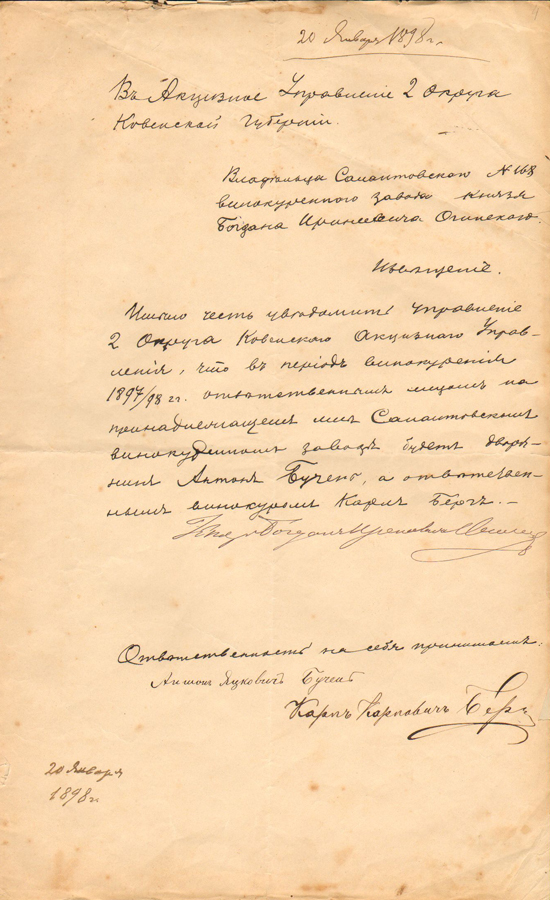 20 Января 1898 г.
Въ Акцизное Управленіе 2 Округа
Ковенской Губерніи.
Владѣльца Самантовскаго № 168
винокуреннаго завода Князя
Богдана Иринеевича Огинскаго.
Извѣщеніе.
Имѣю честь увѣдомить Управленіе
2 Округа Ковенскаго Акцизнаго Управ-
ленія, что въ періодъ винокуренія
1897/98 гг. отвѣтственнымъ лицомъ на
принадлежащемъ мнѣ Самантовскомъ
винокуренномъ заводѣ будетъ дворя-
нинъ Антонъ а отвѣтствен-
нымъ винокуромъ Карлъ Бергъ. —
Князь Богданъ
Отвѣтственность на себя принимаемъ:
Антонъ
Карлъ Карловичъ Бергъ
20 Января
1898 г.